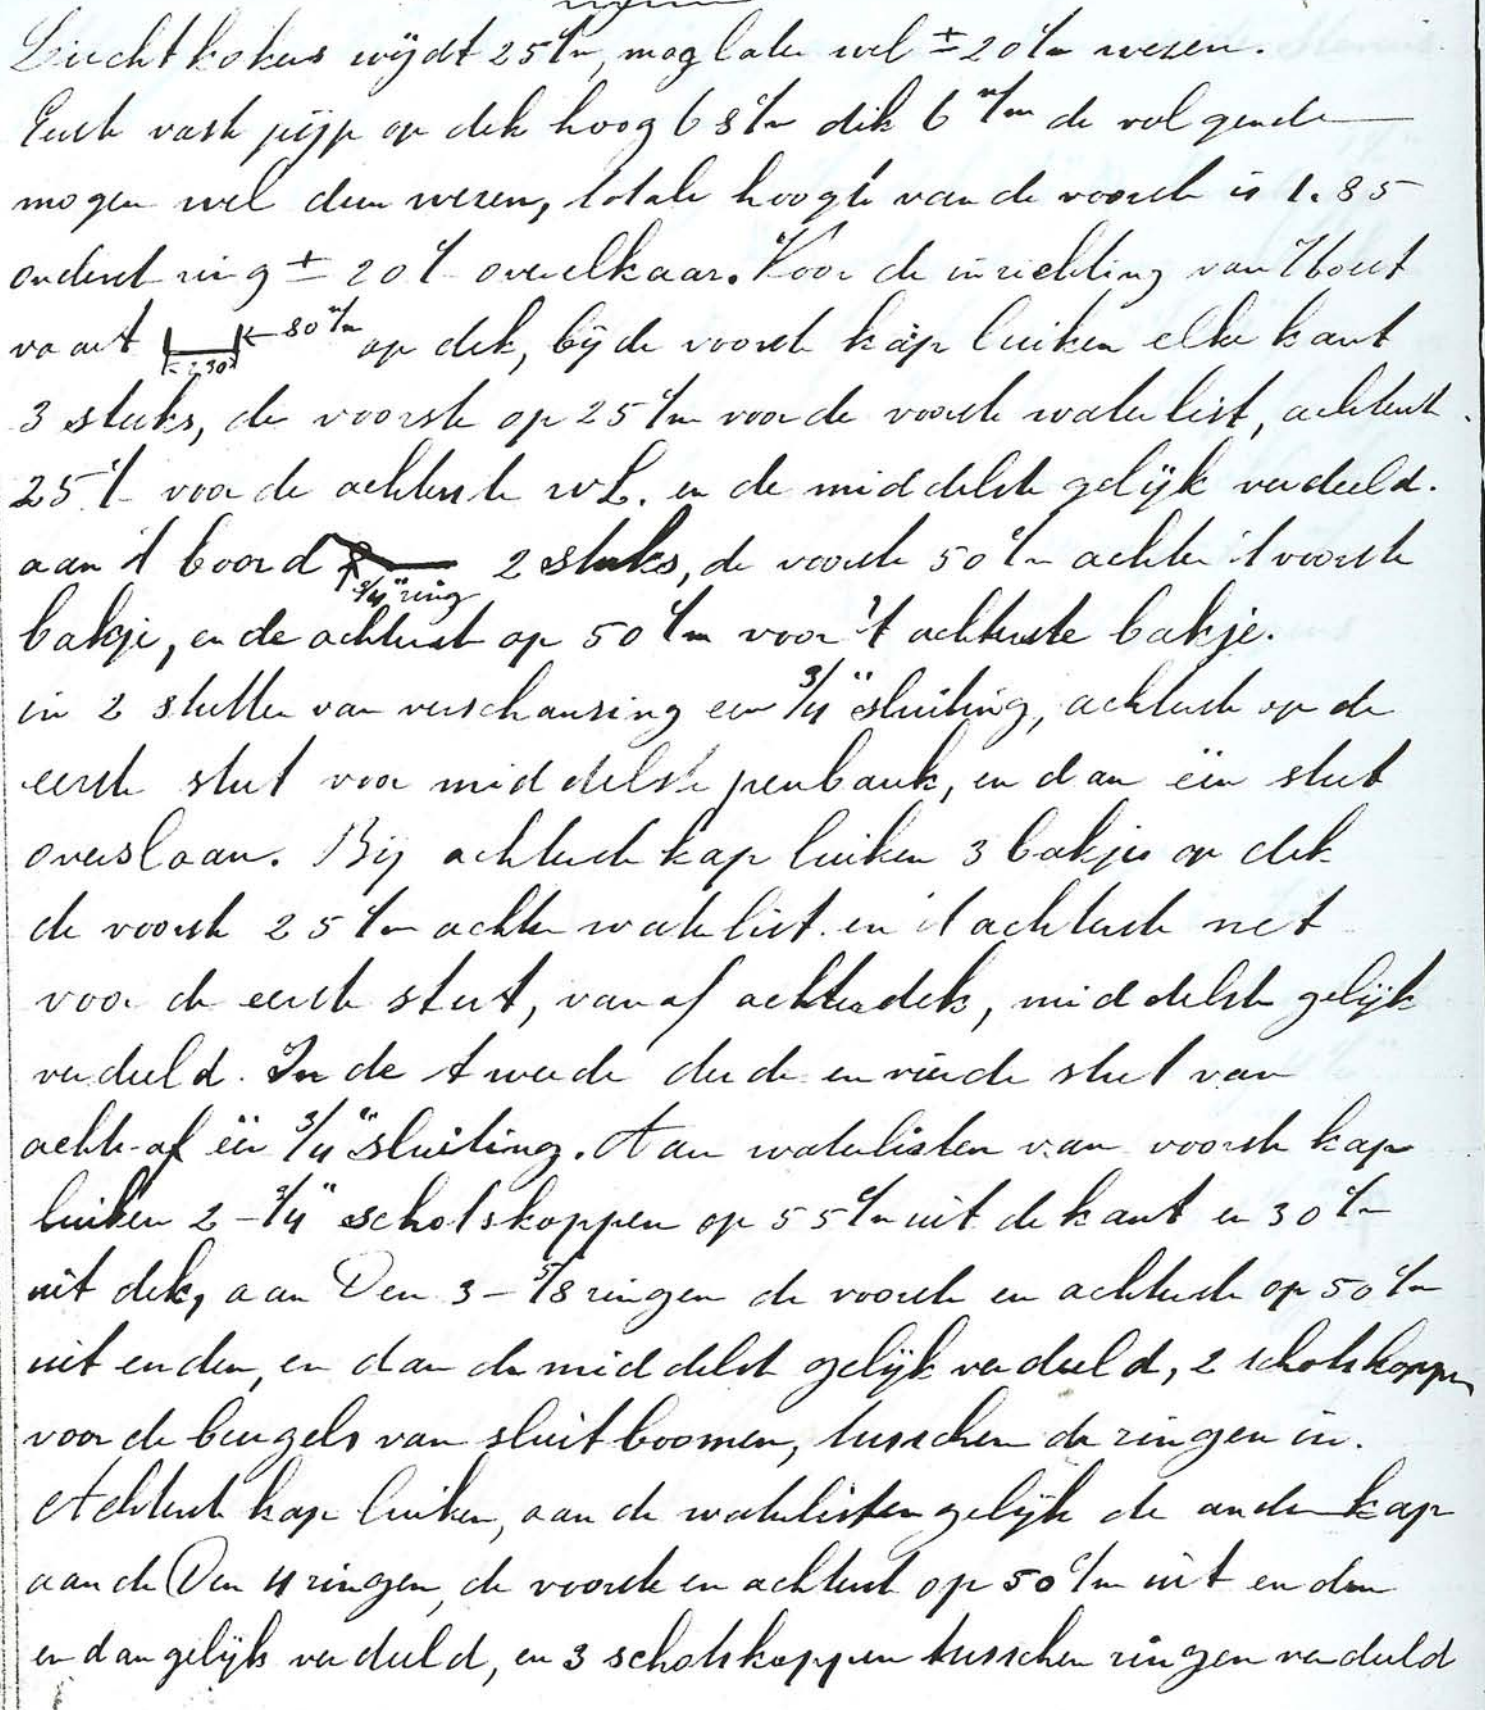 Luchtkokers wijdt 25 c/m, mag later wel ± 20 c/m wezen.
Eerste vaste pijp op dek hoog 68 c/m dik 6 m/m de volgende
mogen wel dun wezen, totale hoogte van de voorste is 1.85
onderst ring ± 20 c/ over elkaar. Voor de inrichting van Hout
vaart 80 m/m op dek, bij de voorste kap luiken elke kant
230
3 stuks, de voorste op 25 c/m voor de voorste waterlist, achterst
25 c/ voor de achterste w L. en de middelste gelijk verdeeld.
aan 't boord 2 stuks, de voorste 50 c/m achter 't voorste
3/4" ring
bakje, en de achterst op 50 c/m voor 't achterste bakje.
in 2 stutten van verschansing een 3/4" sluiting, achterste op de
eerste stut voor middelste penbank, en dan één stut
overslaan. Bij achterste kap luiken 3 bakjes op dek
de voorste 25 c/m achter waterlist. en 't achterste net
voor de eerste stut, vanaf achterdek, middelste gelijk
verdeeld. In de tweede derde en vierde stut van
achter-af één 3/4" sluiting. Aan waterlisten van voorste kap
luiken 2 - 3/4" schotskoppen op 55 c/m uit de kant en 30 c/m
uit dek, aan Den 3 - 5/8 ringen de voorste en achterste op 50 c/m
uit enden, en dan de middelst gelijk verdeeld, 2 schotskoppen
voor de beugels van sluitboomen, tusschen de ringen in.
Achterste kap luiken, aan de waterlisten gelijk de andere kap
aan de Den 4 ringen, de voorste en achterst op 50 c/m uit enden
en dan gelijk verdeeld, en 3 schotskoppen tusschen ringen verdeeld